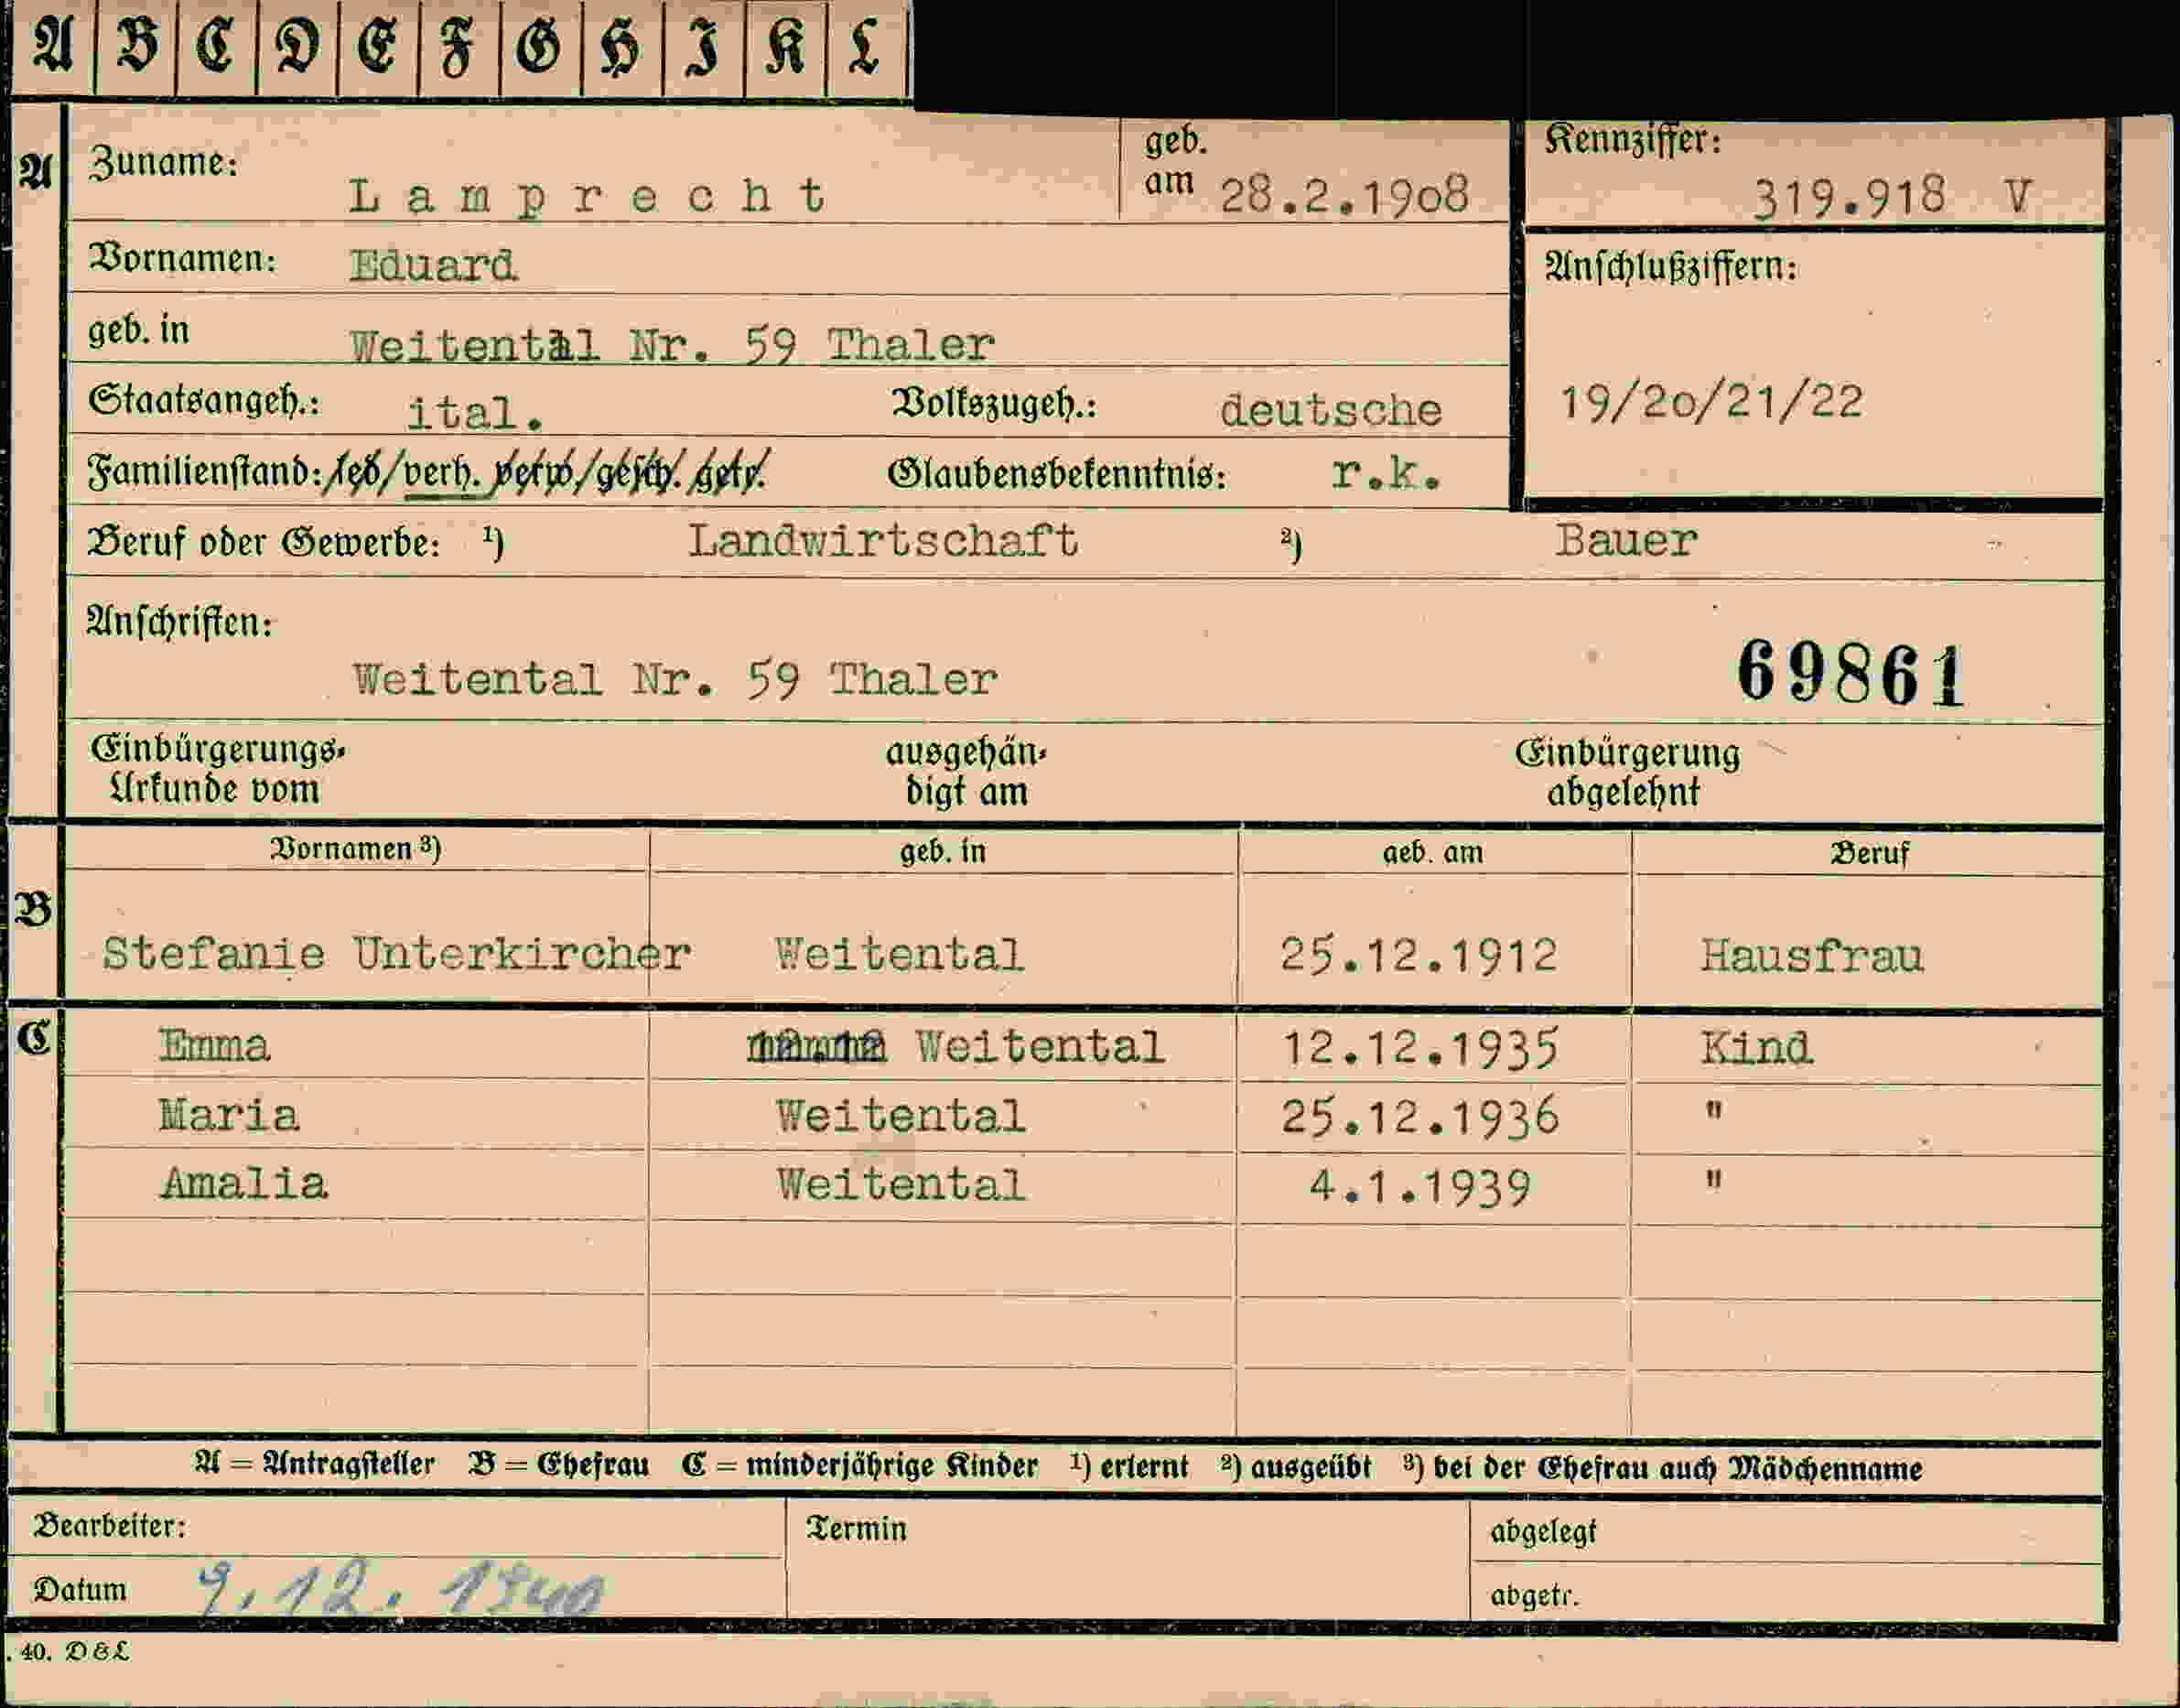 A B C D E F G H I K L
A
Zuname: Lamprecht
geb. am 28.2.1908
Kennziffer:
319.918 V
Vornamen: Eduard
Anschlußziffern:
19/20/21/22
geb. in Weitental Nr. 59 Thaler
Staatsangeh.: ital. Volkszugeh.: deutsche
Familienstand: led/verh. verw/gesch. getr. Glaubensbekenntnis: r.k.
Beruf oder Gewerbe: ¹) Landwirtschaft ²) Bauer
Anschriften:
Weitental Nr. 59 Thaler
69861
Einbürgerungs-
Urkunde vom
ausgehän-
digt am
Einbürgerung
abgelehnt
Vornamen ³) geb. in geb. am Beruf
B
Stefanie Unterkircher Weitental 25.12.1912 Hausfrau
C
Emma Weitental 12.12.1935 Kind
Maria Weitental 25.12.1936 "
Amalia Weitental 4.1.1939 "
A = Antragsteller B = Ehefrau C = minderjährige Kinder ¹) erlernt ²) ausgeübt ³) bei der Ehefrau auch Mädchenname
Bearbeiter: Termin abgelegt
Datum 9.12.1940 abgetr.
. 40. D&L